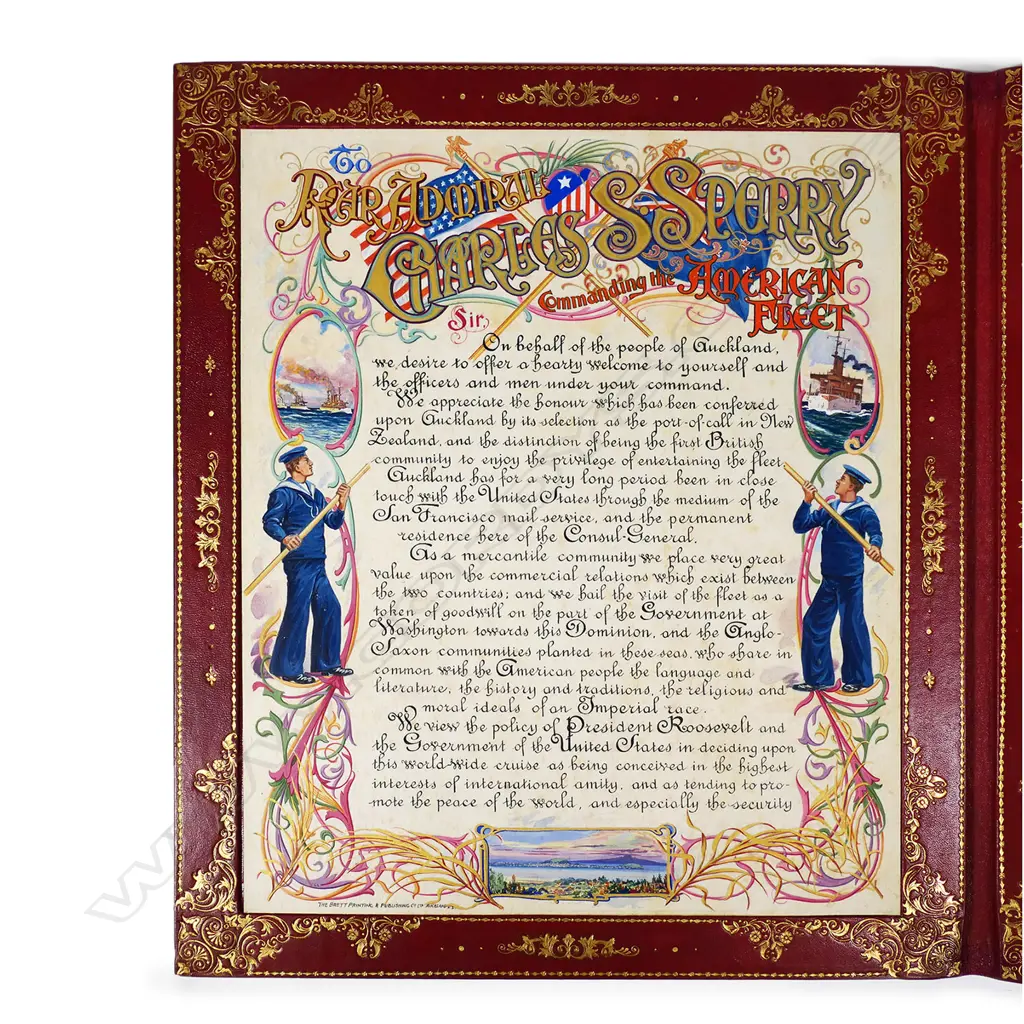 To
Rear Admiral
Charles S. Sperry
Commanding the American
Fleet
Sir,
On behalf of the people of Auckland,
we desire to offer a hearty welcome to yourself and
the officers and men under your command.
We appreciate the honour which has been conferred
upon Auckland by its selection as the port-of-call in New
Zealand, and the distinction of being the first British
community to enjoy the privilege of entertaining the fleet.
Auckland has for a very long period been in close
touch with the United States through the medium of the
San Francisco mail service, and the permanent
residence here of the Consul-General.
As a mercantile community we place very great
value upon the commercial relations which exist between
the two countries; and we hail the visit of the fleet as a
token of goodwill on the part of the Government at
Washington towards this Dominion, and the Anglo-
Saxon communities planted in these seas, who share in
common with the American people the language and
literature, the history and traditions, the religious and
moral ideals of an Imperial race.
We view the policy of President Roosevelt and
the Government of the United States in deciding upon
this world-wide cruise as being conceived in the highest
interests of international amity, and as tending to pro-
mote the peace of the world, and especially the security
The Brett Printing & Publishing Co Ltd Auckland